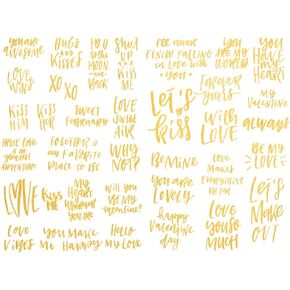 you are
awesome
HUGS
AND
KISSES
TO
THE
MOON
AND
BACK
SHUT
UP
AND
KISS
ME
I'll never
FINISH FALLING
IN LOVE WITH
you
YOU
ARE MY
WORLD
YOU
HAVE
MY
HEART
LOVE
WINS
XO
XO
Forever
yours
MY
VALENTINE
KISS
HIM
KISS
HER
SWEET
FEBRUARY
LOVE
IS IN THE
AIR
let's
kiss
with
LOVE
always
LOVE
IS
THE
GREATEST
ADVENTURE
TOGETHER is
my FAVORITE
PLACE TO BE
WHY
NOT?
BE MINE
LOVE
MAKES
EVERYTHING
BE MY
LOVE
LOVE
KISS
ME
MY
HEART IS
WHEREVER
YOU ARE
Will you
BE MY
VALENTINE?
YOU ARE
LOVELY
happy
VALENTINE
day
Love
you so
MUCH
let's
MAKE
OUT
LOVE
VIBES
YOU MAKE
ME HAPPY
HELLO
MY LOVE